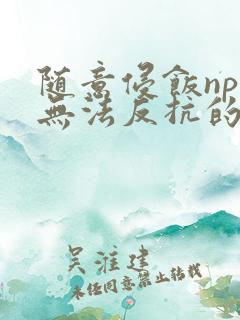 随意侵飯np
無法反抗的
吴淮建
未任同意禁止转载